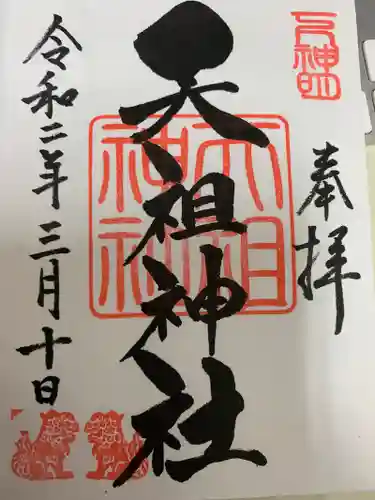 奉拝
天祖神社
天祖神社
令和二年三月十日